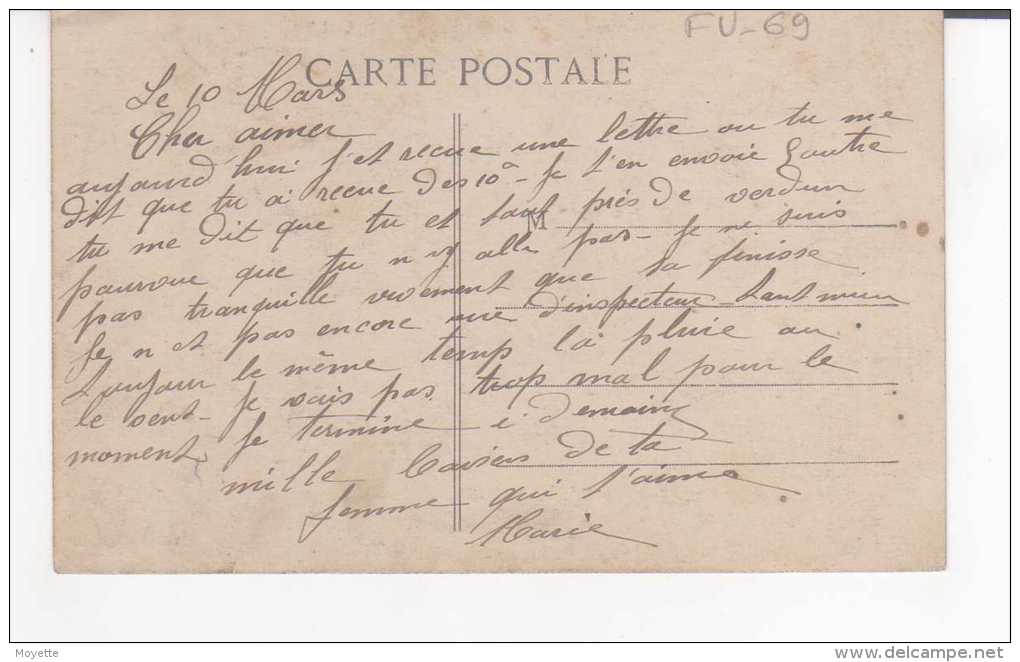 FU-69
CARTE POSTALE
Le 10 Mars
Cher aimer
aujourd hui j'et recue une lettre ou tu me
dit que tu a recue des 10ᵃ - Je t'en envoie Lautre
tu me dit que tu et tout près de verdun
M
pourvue que tu n'y alle pas - Je ne suis
pas tranquille vivement que sa finisse
Je n et pas encore vue d'inspecteur - tant mieu
toujour le même temp la pluie au
le vent - Je vais pas trop mal pour le
moment Je termine a demain
mille baisers de ta
femme qui t'aime
Marie
Moyette
www.delcampe.net